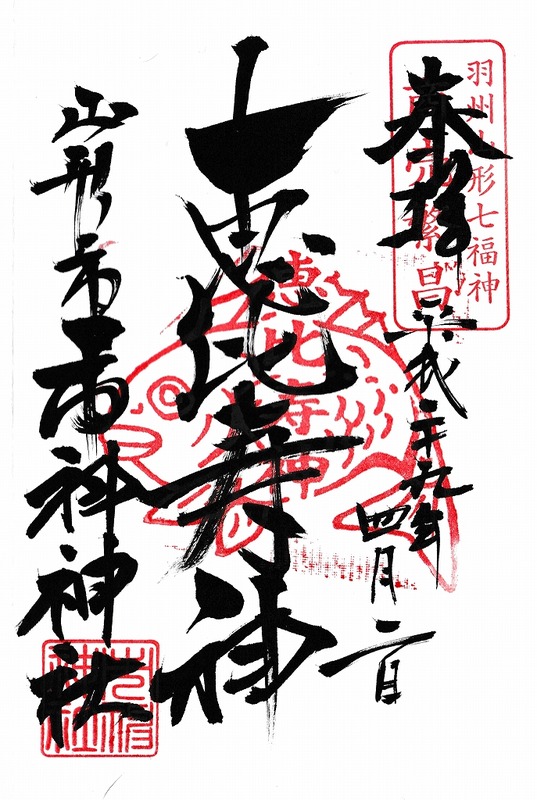 羽州山形七福神
商売繁昌
奉拝
平成二十九年
四月二日
恵比寿神
恵比寿神
山形市市神神社